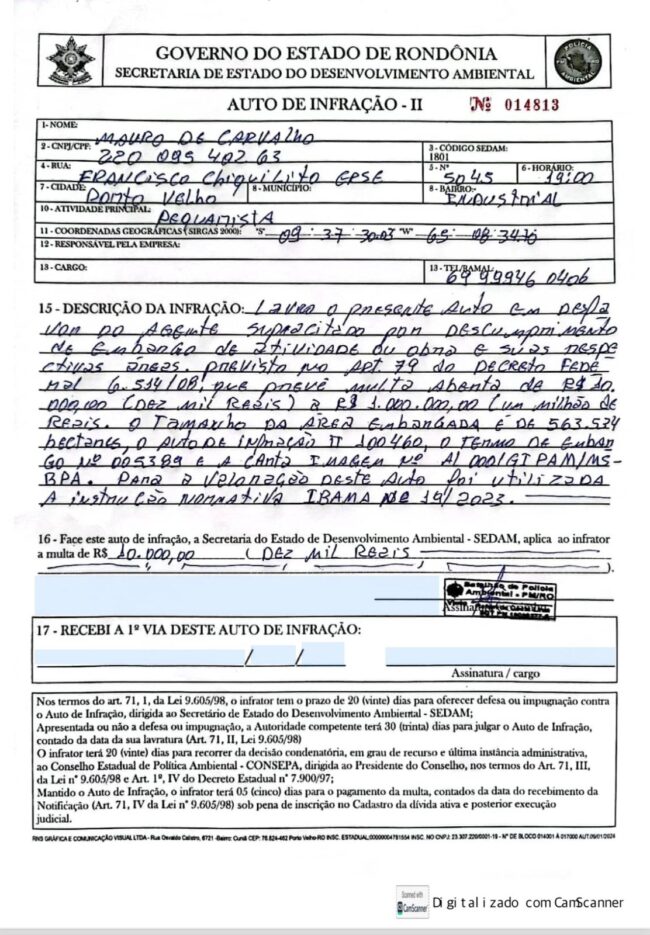 GOVERNO DO ESTADO DE RONDÔNIA
SECRETARIA DE ESTADO DO DESENVOLVIMENTO AMBIENTAL
POLÍCIA AMBIENTAL
AUTO DE INFRAÇÃO - II Nº 014813
1- NOME: MAURO DE CARVALHO
2 - CNPJ/CPF: 220 095 402 63
3 - CÓDIGO SEDAM: 1801
4 - RUA: FRANCISCO CHIQUILITO ERSE
5 - Nº 5045
6 - HORÁRIO: 19:00
7 - CIDADE: PORTO VELHO
8 - MUNICÍPIO:
8 - BAIRRO: INDUSTRIAL
10 - ATIVIDADE PRINCIPAL: PEQUARISTA
11 - COORDENADAS GEOGRÁFICAS ( SIRGAS 2000): "S" 09 : 37 30.03 "W" 65 - 08 34.76
12 - RESPONSÁVEL PELA EMPRESA:
13 - CARGO:
13 - TEL/RAMAL: 69 99946 0406
15 - DESCRIÇÃO DA INFRAÇÃO: LAVRO O PRESENTE AUTO EM DESFA
VOR DO AGENTE SUPRACITADO POR DESCUMPRIMENTO
DE EMBARGO DE ATIVIDADE OU OBRA E SUAS RESPE
CTIVAS ÁREAS. PREVISTO NO ART 79 DO DECRETO FEDE
RAL 6.514/08, QUE PREVÊ MULTA ABERTA DE R$ 10.
000,00 (DEZ MIL REAIS) A R$ 1.000.000,00 (UM MILHÃO DE
REAIS. O TAMANHO DA ÁREA EMBARGADA É DE 563.524
HECTARES, O AUTO DE INFRAÇÃO II 100460, O TERMO DE EMBAR
GO Nº 005389 E A CARTA IMAGEM Nº A1 000/GTPAM/MS-
BPA. PARA A VALORAÇÃO DESTE AUTO FOI UTILIZADA
A INSTRUÇÃO NORMATIVA IBAMA Nº 19/2023.
16 - Face este auto de infração, a Secretaria do Estado de Desenvolvimento Ambiental - SEDAM, aplica ao infrator
a multa de R$ 10.000,00 ( DEZ MIL REAIS
).
Batalhão de Polícia
Ambiental - PM/RO
17 - RECEBI A 1ª VIA DESTE AUTO DE INFRAÇÃO:
/ /
Assinatura / cargo
Nos termos do art. 71, 1, da Lei 9.605/98, o infrator tem o prazo de 20 (vinte) dias para oferecer defesa ou impugnação contra
o Auto de Infração, dirigida ao Secretário de Estado do Desenvolvimento Ambiental - SEDAM;
Apresentada ou não a defesa ou impugnação, a Autoridade competente terá 30 (trinta) dias para julgar o Auto de Infração,
contado da data da sua lavratura (Art. 71, II, Lei 9.605/98)
O infrator terá 20 (vinte) dias para recorrer da decisão condenatória, em grau de recurso e última instância administrativa,
ao Conselho Estadual de Política Ambiental - CONSEPA, dirigida ao Presidente do Conselho, nos termos do Art. 71, III,
da Lei nº 9.605/98 e Art. 1º, IV do Decreto Estadual nº 7.900/97;
Mantido o Auto de Infração, o infrator terá 05 (cinco) dias para o pagamento da multa, contados da data do recebimento da
Notificação (Art. 71, IV da Lei nº 9.605/98) sob pena de inscrição no Cadastro da dívida ativa e posterior execução
judicial.
RNS GRÁFICA E COMUNICAÇÃO VISUAL LTDA - Rua Osvaldo Calistro, 6721 -Bairro: Cuniã CEP: 76.824-462 Porto Velho-RO INSC. ESTADUAL:00000004781554 INSC. NO CNPJ: 23.307.220/0001-19 - Nº DE BLOCO 014001 À 017000 AUT.09/01/2024
Scanned with
CamScanner
Digitalizado com CamScanner